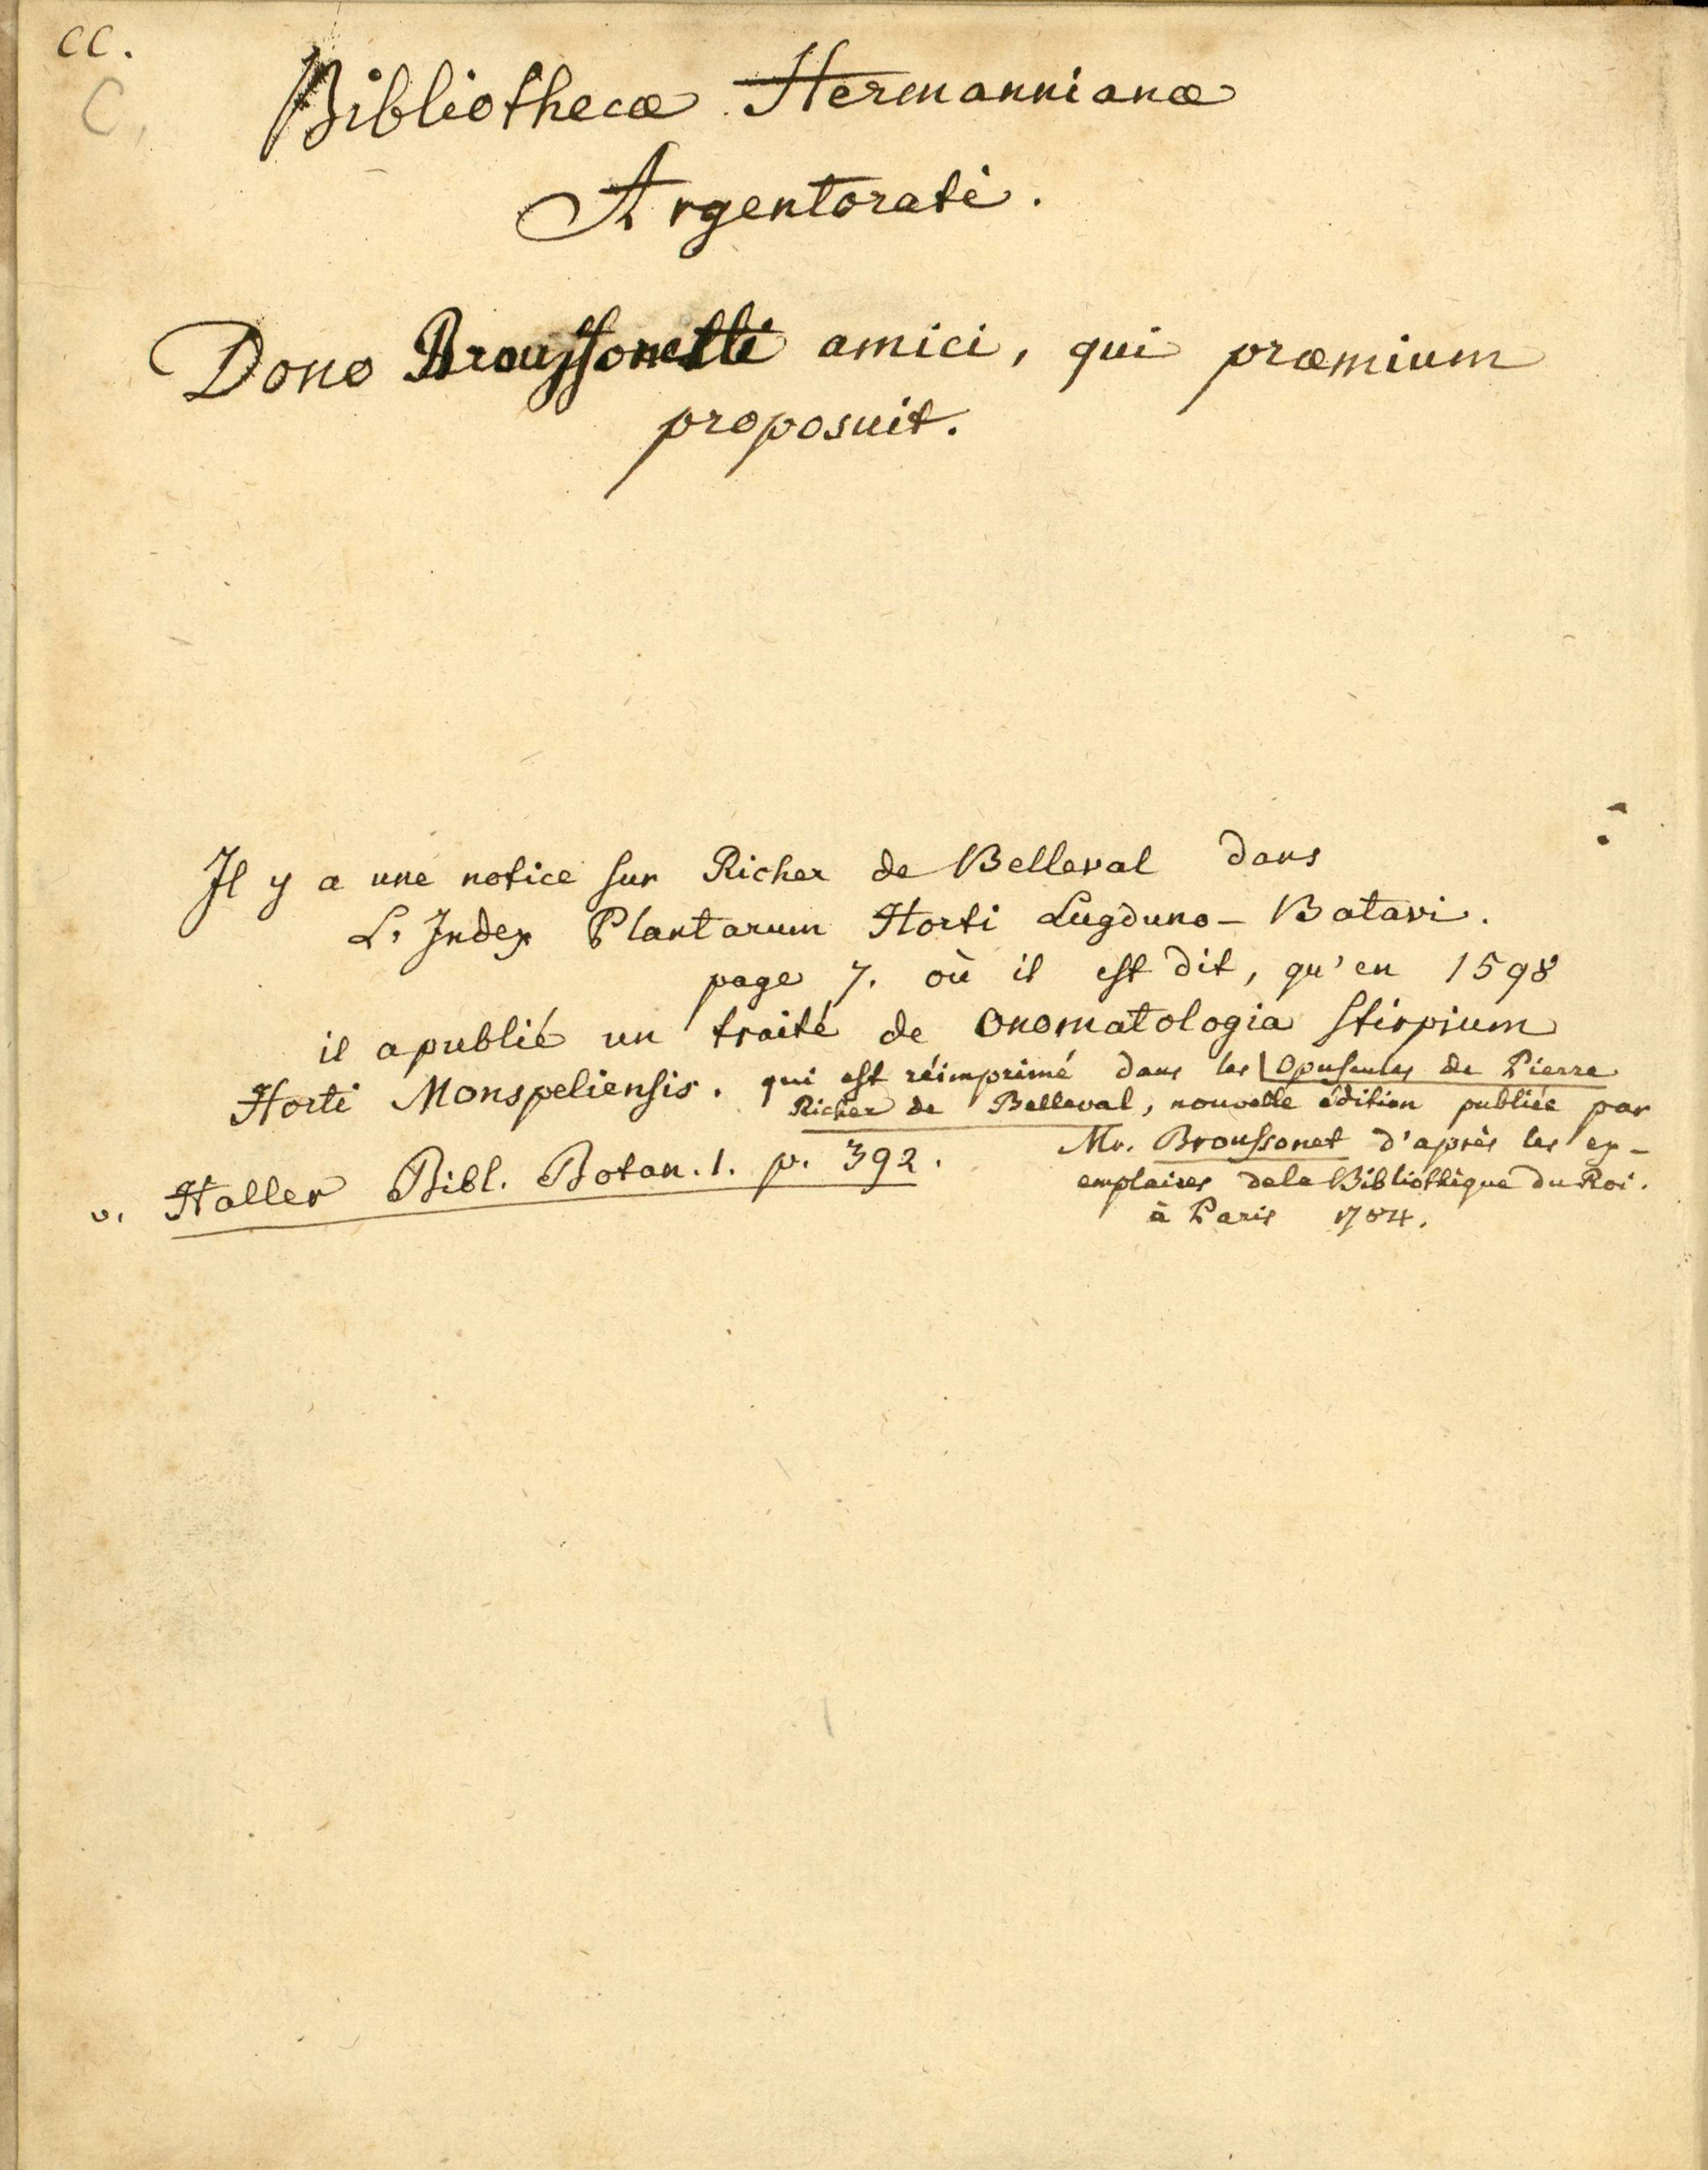 cc.
C.
Bibliothecæ Hermannianæ
Argentorati.
Dono Broussonetti amici, qui præmium
proposuit.
Il y a une notice sur Richer de Belleval dans
L. Index Plantarum Horti Lugduno-Batavi.
page 7. où il est dit, qu'en 1598
il a publié un traité de Onomatologia Stirpium
Horti Monspeliensis. qui est réimprimé dans les Opuscules de Pierre
Richer de Belleval, nouvelle édition publiée par
Mr. Broussonet d'après les ex-
emplaires de la Bibliothèque du Roi.
à Paris 1784.
v. Haller Bibl. Botan. 1. p. 392.